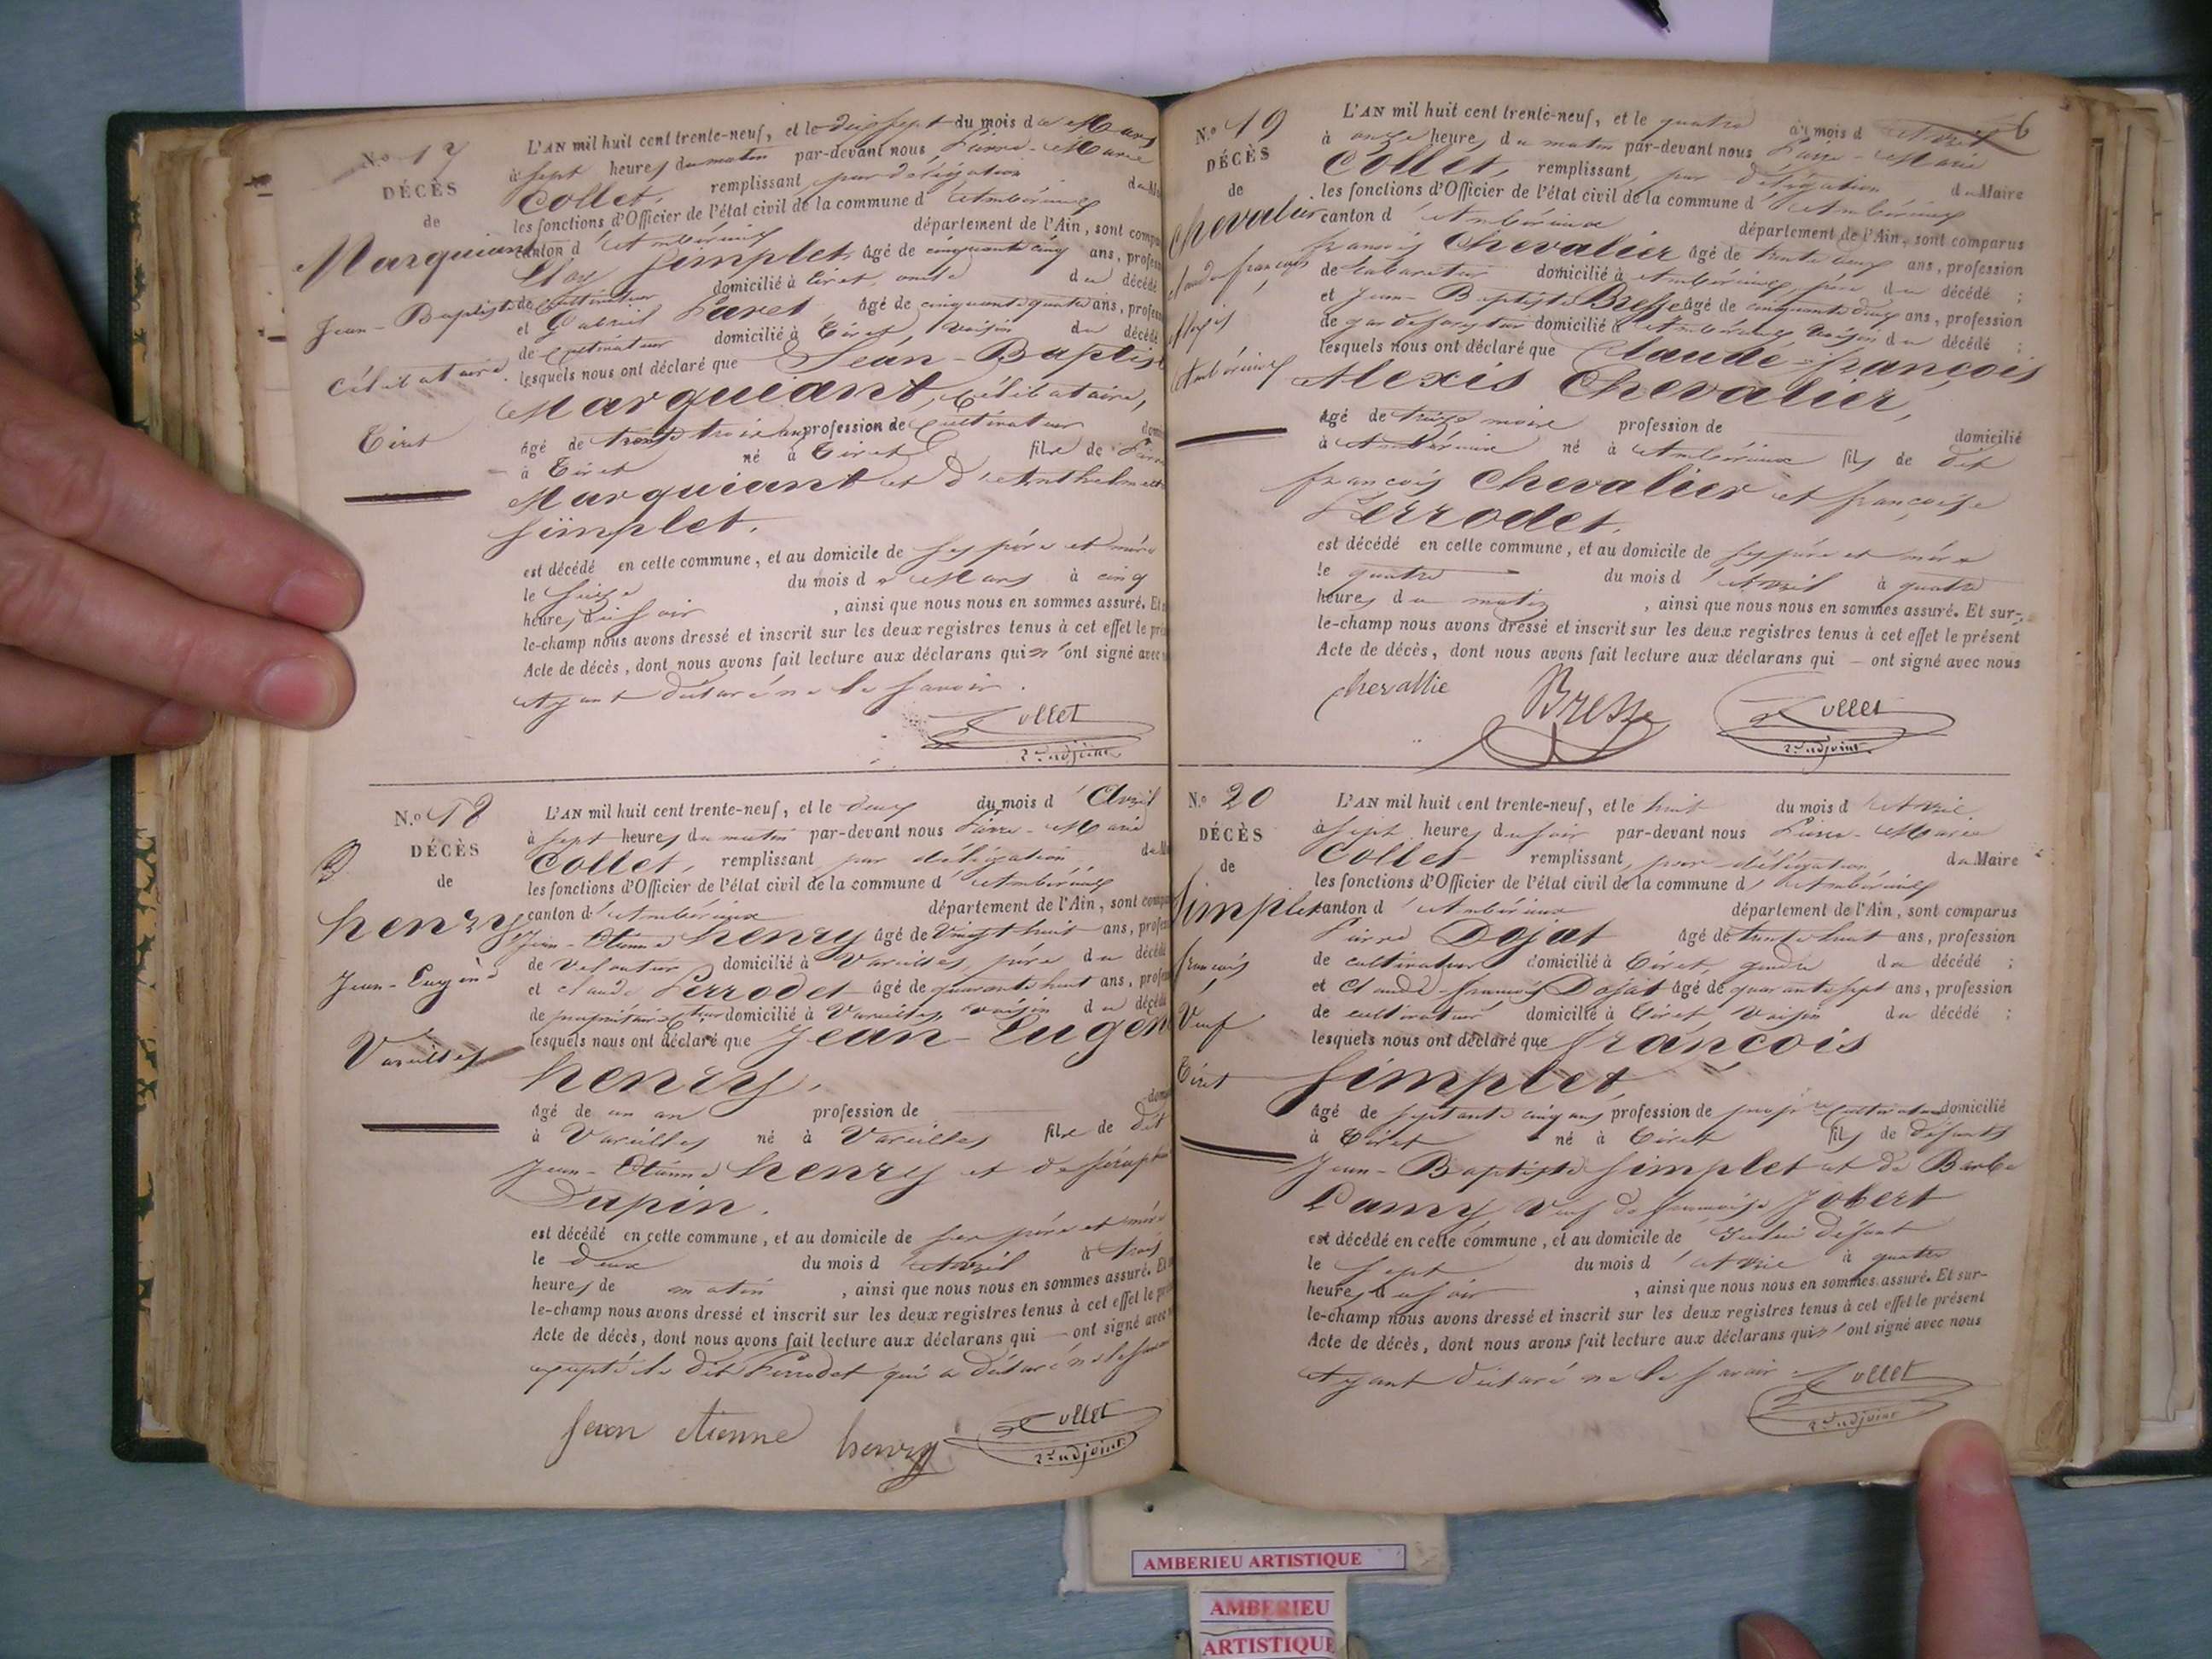 N.o 17
DÉCÈS
de
Marquiant
Jean-Baptiste
Célibataire
Tiret
L'AN mil huit cent trente-neuf, et le dix sept du mois de Mars
à sept heures du matin par-devant nous Pierre-Marie
Collet, remplissant par délégation du
les fonctions d'Officier de l'état civil de la commune d'Ambérieux
canton d'Ambérieux département de l'Ain, sont
Simplet, âgé de cinquante cinq ans,
de cultivateur domicilié à Tiret, oncle du décédé
et Gabriel Favet, âgé de cinquante quatre ans,
de cultivateur domicilié à Tiret, voisin du décédé
lesquels nous ont déclaré que Jean-Baptiste
Marquiant, célibataire,
âgé de trente trois ans profession de cultivateur
à Tiret né à Tiret fils de Pierre
Marquiant et d'Anthelmette
Simplet.
est décédé en cette commune, et au domicile de ses père et mère
le seize du mois de Mars à cinq
heures du soir, ainsi que nous nous en sommes assuré. Et
le-champ nous avons dressé et inscrit sur les deux registres tenus à cet effet le
Acte de décès, dont nous avons fait lecture aux déclarans qui n'ont signé avec
Ayant déclaré ne le savoir.
Collet
2e adjoint
N.o 18
DÉCÈS
de
henry
Jean-Eugène
Vareilles
L'AN mil huit cent trente-neuf, et le deux du mois d'Avril
à sept heures du matin par-devant nous Pierre-Marie
Collet, remplissant par délégation du
les fonctions d'Officier de l'état civil de la commune d'Ambérieux
canton d'Ambérieux département de l'Ain, sont
Jean-Etienne henry âgé de vingt huit ans,
de Veloutier domicilié à Vareilles, père du décédé
et claude Perrodet âgé de quarante huit ans,
de propriétaire domicilié à Vareilles voisin du décédé
lesquels nous ont déclaré que Jean-Eugène
henry,
âgé de un an profession de
à Vareilles né à Vareilles fils de dit
Jean-Etienne henry et de
Dupin.
est décédé en cette commune, et au domicile de ses père et mère
le deux du mois d'Avril à trois
heures de matin, ainsi que nous nous en sommes assuré. Et
le-champ nous avons dressé et inscrit sur les deux registres tenus à cet effet le
Acte de décès, dont nous avons fait lecture aux déclarans qui — ont signé avec
excepté le dit Perrodet qui a déclaré ne le savoir
Jean etienne henry
Collet
2e adjoint
N.o 19
DÉCÈS
de
Chevalier
claude françois
Alexis
Ambérieux
6
L'AN mil huit cent trente-neuf, et le quatre du mois d'Avril
à onze heures du matin par-devant nous Pierre-Marie
Collet, remplissant par délégation du Maire
les fonctions d'Officier de l'état civil de la commune d'Ambérieux
canton d'Ambérieux département de l'Ain, sont comparus
françois Chevalier âgé de trente deux ans, profession
de cabaretier domicilié à Ambérieux, père du décédé ;
et Jean-Baptiste Bresse âgé de cinquante deux ans, profession
de garde forestier domicilié à Ambérieux voisin du décédé ;
lesquels nous ont déclaré que Claude-françois
Alexis Chevalier,
âgé de treize mois profession de domicilié
à Ambérieux né à Ambérieux fils de dit
françois Chevalier et françoise
Perrodet.
est décédé en cette commune, et au domicile de ses père et mère
le quatre du mois d'Avril à quatre
heures du matin, ainsi que nous nous en sommes assuré. Et sur-
le-champ nous avons dressé et inscrit sur les deux registres tenus à cet effet le présent
Acte de décès, dont nous avons fait lecture aux déclarans qui — ont signé avec nous
chevallie Bresse Collet
2e adjoint
N.o 20
DÉCÈS
de
Simplet
françois
Veuf
Tiret
L'AN mil huit cent trente-neuf, et le huit du mois d'Avril
à sept heures du soir par-devant nous Pierre-Marie
Collet remplissant par délégation du Maire
les fonctions d'Officier de l'état civil de la commune d'Ambérieux
canton d'Ambérieux département de l'Ain, sont comparus
Pierre Dojat âgé de trente huit ans, profession
de cultivateur domicilié à Tiret, gendre du décédé ;
et Claude-françois Dojat âgé de quarante sept ans, profession
de cultivateur domicilié à Tiret, voisin du décédé ;
lesquels nous ont déclaré que françois
Simplet,
âgé de septante cinq ans profession de cultivateur domicilié
à Tiret né à Tiret fils de défunts
Jean-Baptiste Simplet et de Barbe
Lamy veuf de françoise Jobert
est décédé en cette commune, et au domicile de défunt
le sept du mois d'Avril à quatre
heures du soir, ainsi que nous nous en sommes assuré. Et sur-
le-champ nous avons dressé et inscrit sur les deux registres tenus à cet effet le présent
Acte de décès, dont nous avons fait lecture aux déclarans qui n'ont signé avec nous
Ayant déclaré ne le savoir
Collet
2e adjoint
AMBERIEU ARTISTIQUE
AMBERIEU
ARTISTIQUE